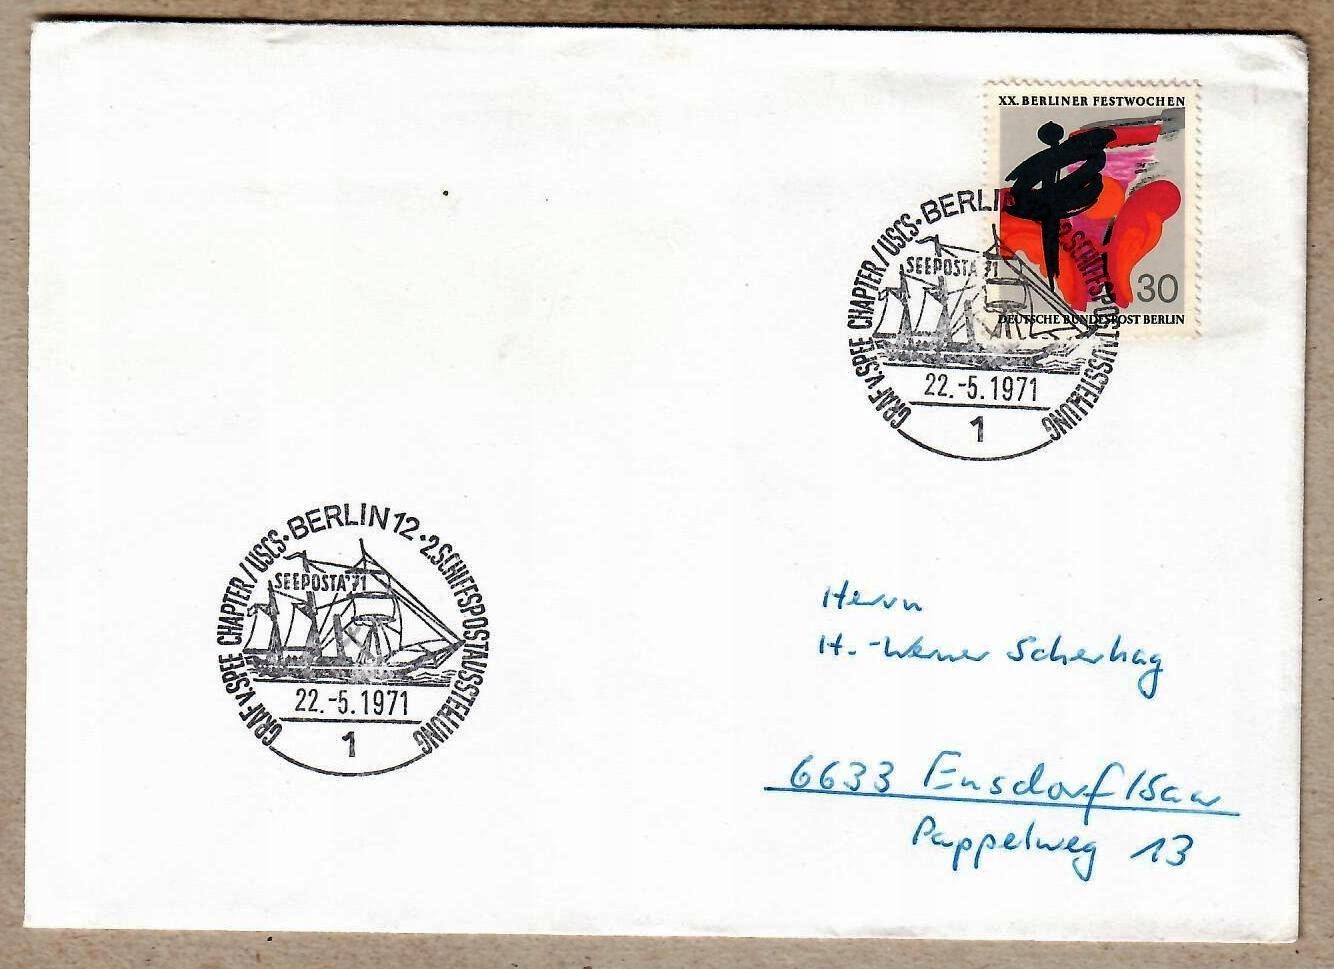 XX. BERLINER FESTWOCHEN
30
DEUTSCHE BUNDESPOST BERLIN
GRAF V. SPEE CHAPTER/USCS · BERLIN 12 · 2. SCHIFFSPOSTAUSSTELLUNG
SEEPOSTA '71
22.-5.1971
1
GRAF V. SPEE CHAPTER/USCS · BERLIN 12 · 2. SCHIFFSPOSTAUSSTELLUNG
SEEPOSTA '71
22.-5.1971
1
Herrn
H.-Werner Scherhag
6633 Ensdorf/Saar
Pappelweg 13